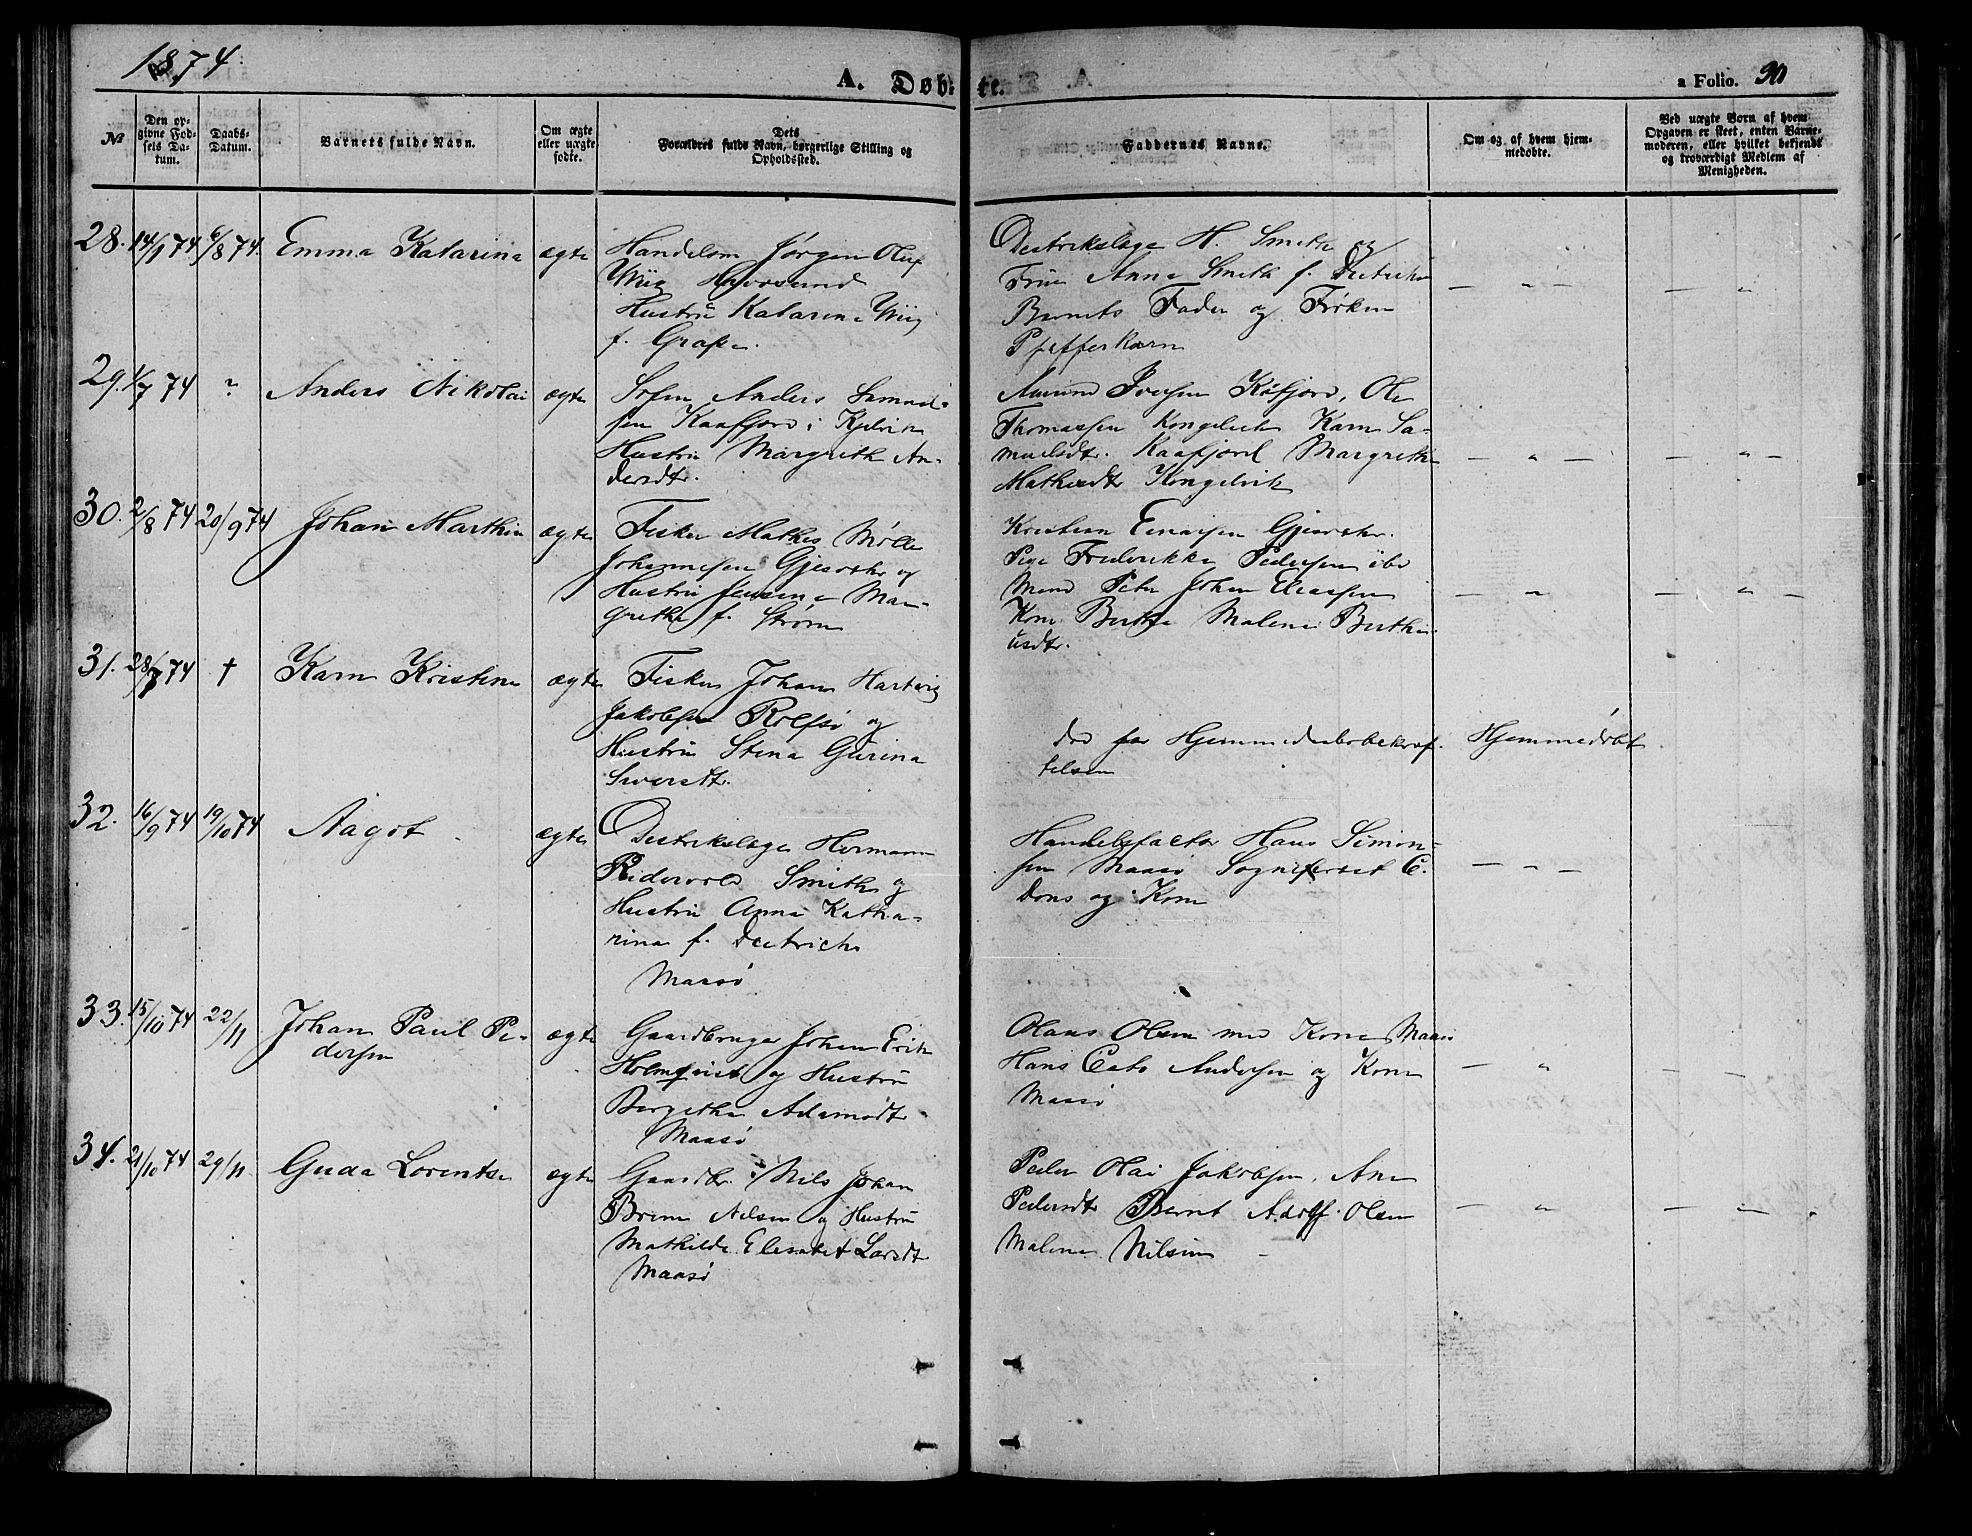 1874
A. Døb-
te.
a Folio. 30
No
Den op-
givne Fød-
sels Da-
tum.
Daabs-
Datum.
Barnets fulde Navn.
Om ægte
eller uægte
fødte.
Dets
Forældres fulde Navn, borgerlige Stilling og
Opholdssted.
Faddernes Navne.
Om og af hvem hjem-
medøbte.
Ved uægte Børn af hvem
Opgaven er skeet, enten Barne-
moderen, eller hvilket bekjendt
og troværdigt Medlem af
Menigheden.
28. 14/1 74 6/8 74. Emma Katarina ægte
Handelsm Jørgen Oluf
Wiig Havøsund
Hustru Katarina Wiig
f. Grape.
Destrikslæge H. Smith og
Frue Anna Smith f. Dietrichs
Barnets Fader og Frøken
Pfefferkorn
— " — — "
29. 1/7 74 ? Anders Nikolai ægte
Anders Samuel-
sen Kaafjord i Kjelvik
Hustru Margreth An-
dersdtr.
Amund Kåfjord, Ole
Thomassen Kongelvik Karn Sa-
muelsdtr. Kaafjord Margreth
Mathisdtr Kongelvik
— " — — " —
30. 2/8 74 20/9 74 Johan Marthin ægte
Fisker Mathis Møller
Johannesen Gjesvær og
Hustru Jensina Mar-
gretha f. Strøm
Kristian Einarsen Gjesvær.
Pige Frederikka Pedersen ibd
Mand Peter Johan Eliassen
Kone Malena Berthe-
usdtr.
— " — — " —
31. 28/7 74 † Karn Kristine ægte
Fisker Johan Hartvig
Jakobsen Rolfsø og
Hustru Stina Gurina
Siversdtr.
død før Hjemmedaabsbekræf-
telsen
Hjemmedøbt
32. 16/9 74 19/10 74 Aagot ægte
Destrikslæge Herman
Ridervold Smith og
Hustru Anna Katha-
rina f. Dietrichs
Maasø
Handelsfactor Hans Simon-
sen Maasø Sognepræst C.
Dons og Kone
— " —
33. 15/10 74 22/11 Johan Paul Pe-
dersen ægte
Gaardbruger Johan Erik
Holmqvist og Hustru
Bergitha Adamsdtr
Maasø
Olaus Olsen med Kone Maasø
Hans Cato Andersen og Kone
Maasø
— " — " —
34. 21/10 74 29/11. Guda Lorentse ægte
Gaardbr. Nils Johan
Brun Nilsen og Hustru
Mathilde Elisabet Larsdtr
Maasø
Peder Olai Jakobsen, Ane
Pedersdtr Bernt Adolf Olsen
Malene Nilsen
— " — "